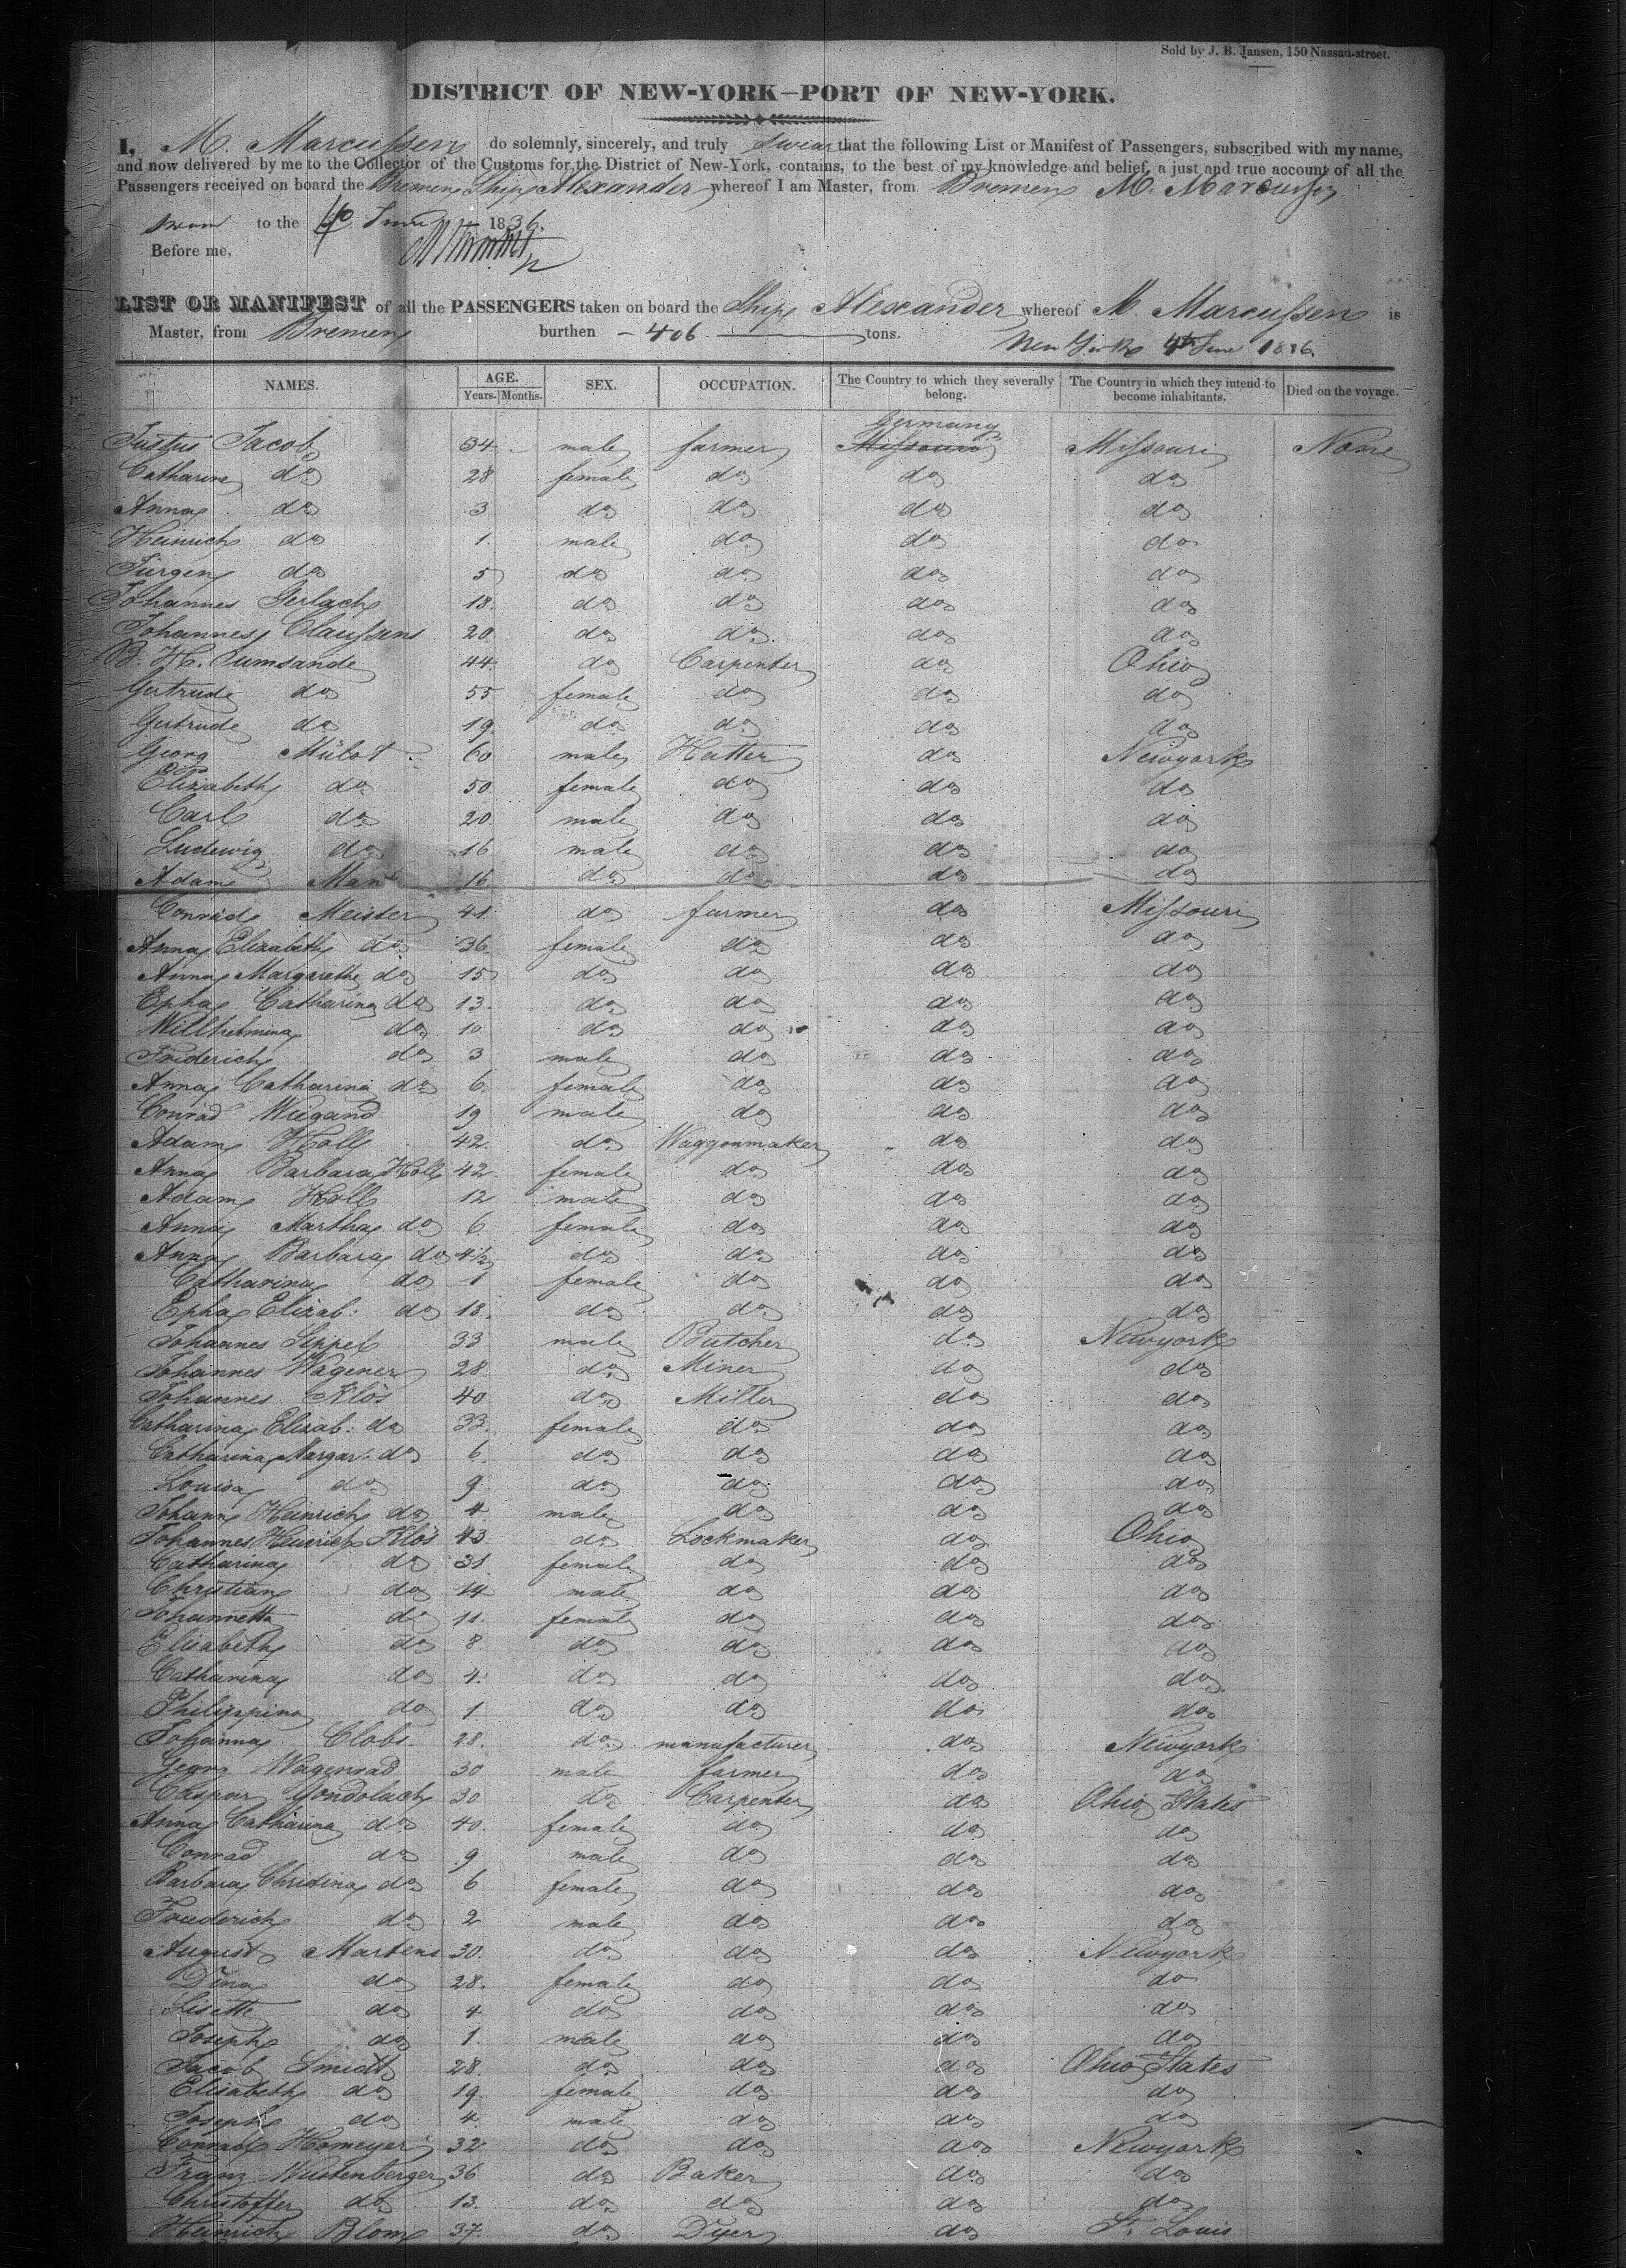 Sold by J. B. Jansen, 150 Nassau-street.
DISTRICT OF NEW-YORK—PORT OF NEW-YORK.
I, M. Marcussen do solemnly, sincerely, and truly swear that the following List or Manifest of Passengers, subscribed with my name,
and now delivered by me to the Collector of the Customs for the District of New-York, contains, to the best of my knowledge and belief, a just and true account of all the
Passengers received on board the Bremen Ship Alexander whereof I am Master, from Bremen M. Marcussen
sworn to the 4 June 1836.
Before me,
LIST OR MANIFEST of all the PASSENGERS taken on board the Ship Alexander whereof M. Marcussen is
Master, from Bremen burthen — 406 — tons. New York 4th June 1836.
NAMES. AGE. Years. Months. SEX. OCCUPATION. The Country to which they severally belong. The Country in which they intend to become inhabitants. Died on the voyage.
Germany
Justus Jacob 34 male farmer Missouri Missouri None
Catharine do 28 female do do do
Anna do 3 do do do do
Heinrich do 1 male do do do
Jürgen do 5 do do do do
Johannes Gerlach 18 do do do do
Johannes Claussens 20 do do do do
B. H. Sumsande 44 do Carpenter do Ohio
Gertrude do 55 female do do do
Gertrude do 19 do do do do
Georg Mülot 60 male Hatter do Newyork
Elizabeth do 50 female do do do
Carl do 20 male do do do
Ludewig do 16 male do do do
Adam Man 16 do do do do
Conrad Meister 41 do farmer do Missouri
Anna Elizabeth do 36 female do do do
Anna Margarethe do 15 do do do do
Epha Catharina do 13 do do do do
Willhelmina do 10 do do do do
Friderich do 3 male do do do
Anna Catharina do 6 female do do do
Conrad Wiegand 19 male do do do
Adam Holl 42 do Waggonmaker do do
Anna Barbara Holl 42 female do do do
Adam Holl 12 male do do do
Anna Martha do 6 female do do do
Anna Barbara do 4½ do do do do
Catharina do 1 female do do do
Epha Elizab: do 18 do do do do
Johannes Seppel 33 male Butcher do Newyork
Johannes Wagener 28 do Miner do do
Johannes Klös 40 do Miller do do
Catharina Elizab: do 33 female do do do
Catharina Margar: do 6 do do do do
Louisa do 9 do do do do
Johann Heinrich do 4 male do do do
Johannes Heinrich Klös 43 do Lockmaker do Ohio
Catharina do 31 female do do do
Christian do 14 male do do do
Johannetta do 11 female do do do
Elisabeth do 8 do do do do
Catharina do 4 do do do do
Philippina do 1 do do do do
Johanna Clobs 28 do manufacturer do Newyork
Georg Wagenrad 30 male farmer do do
Caspar Gondolach 30 do Carpenter do Ohio States
Anna Catharina do 40 female do do do
Conrad do 9 male do do do
Barbara Christina do 6 female do do do
Friederich do 2 male do do do
August Martens 30 do do do Newyork
Dina do 28 female do do do
Lisette do 4 do do do do
Joseph do 1 male do do do
Jacob Smidt 28 do do do Ohio States
Elisabeth do 19 female do do do
Joseph do 4 male do do do
Conrad Homeyer 32 do do do Newyork
Franz Wustenberger 36 do Baker do do
Christoffer do 13 do do do do
Heinrich Blom 37 do Dyer do St. Louis